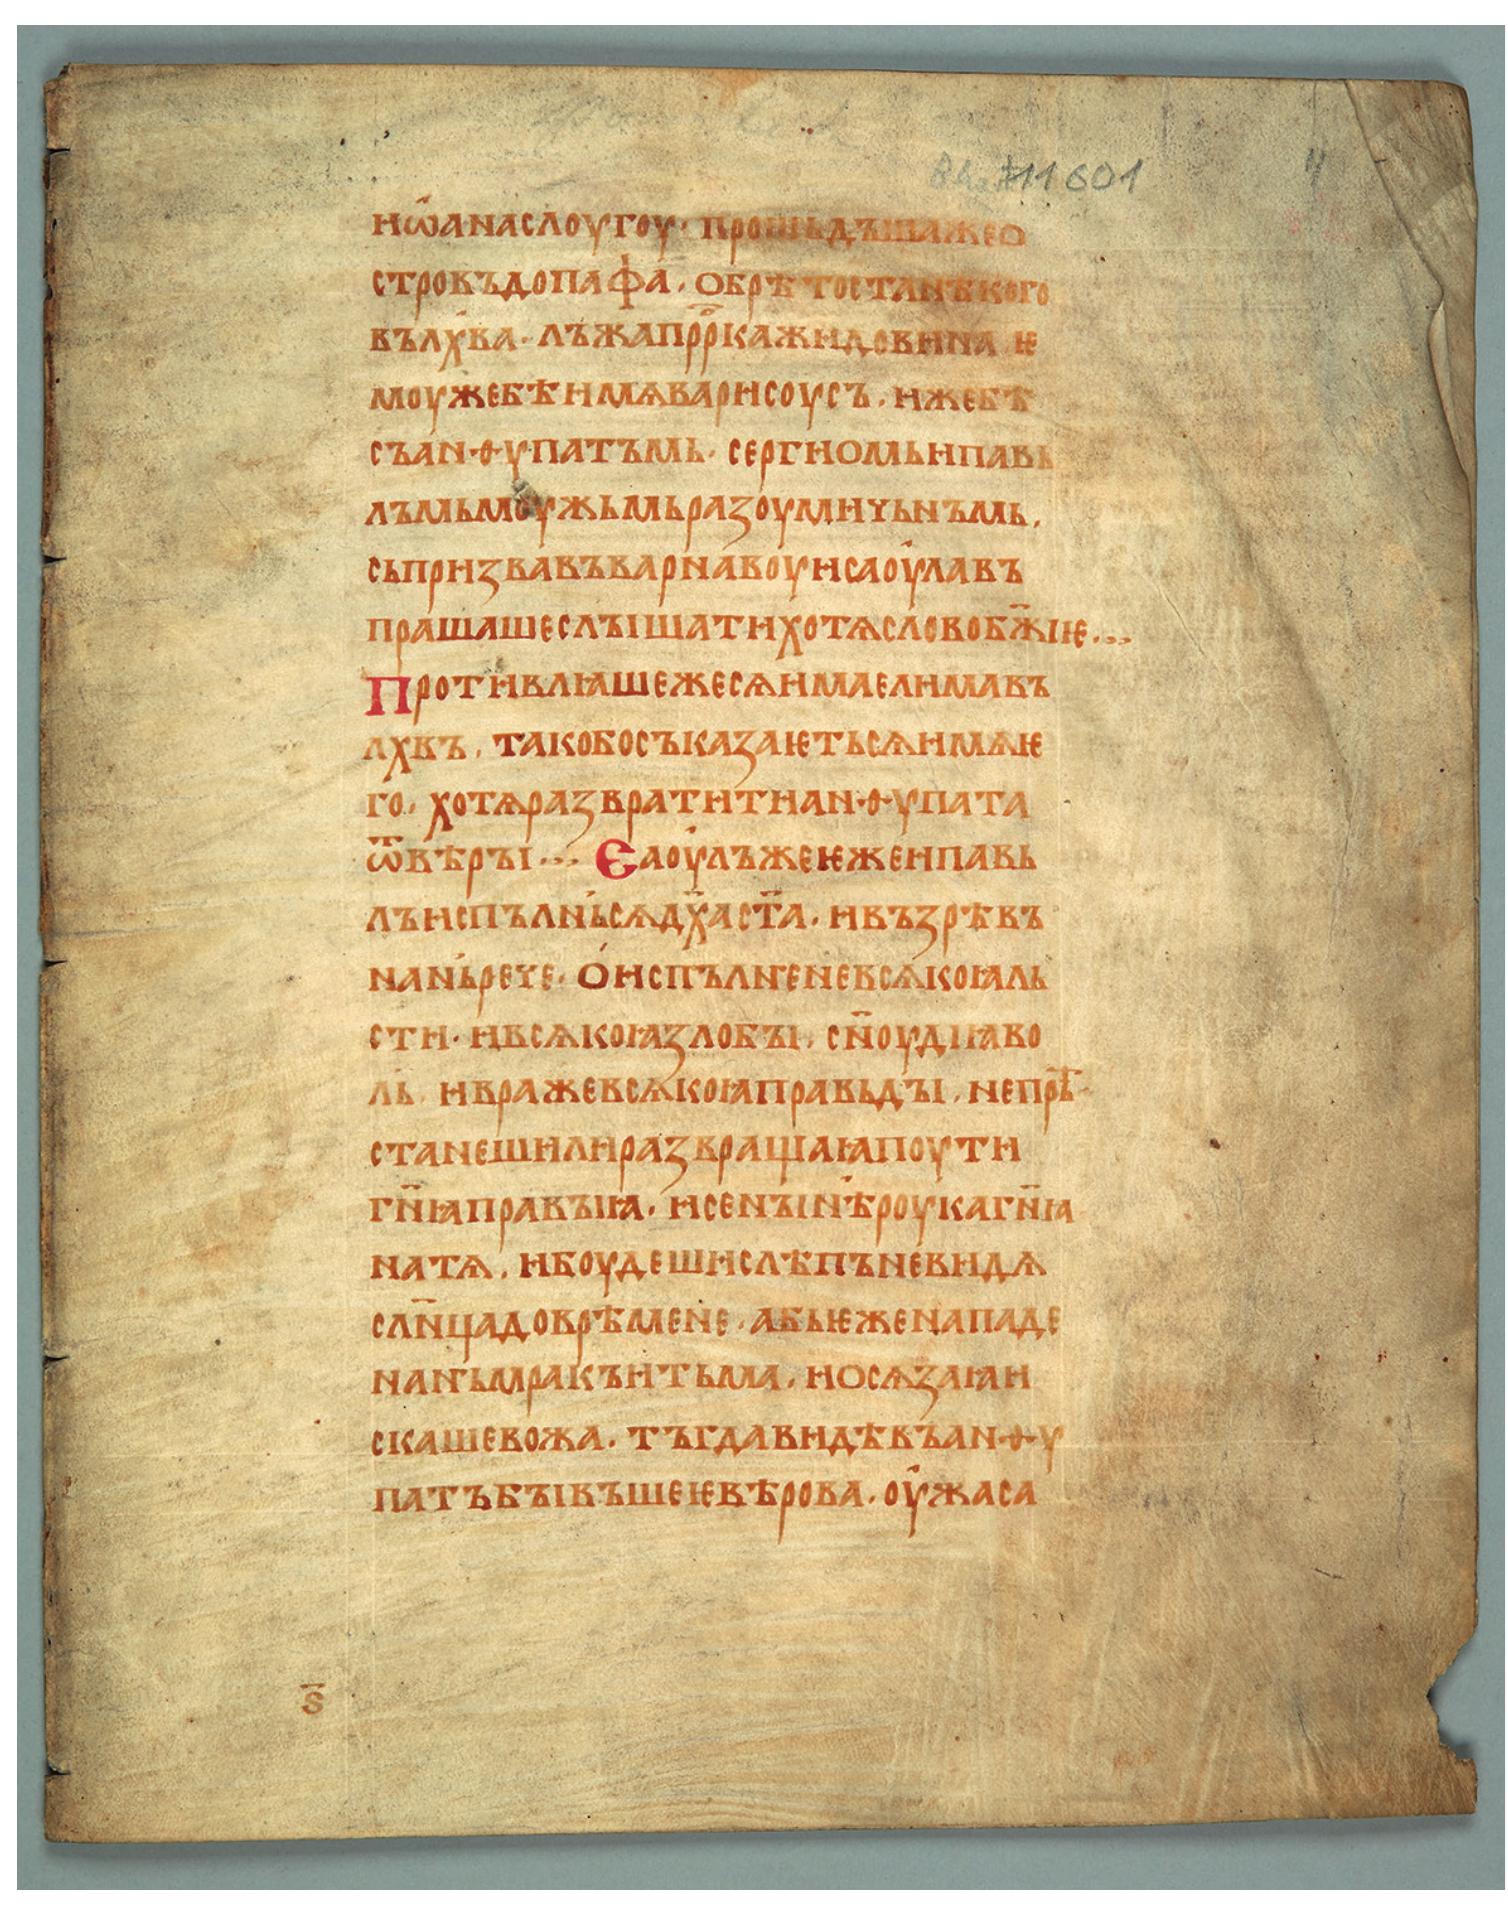 Вч № 11601
иѡ҃анаслоугоу· прошьдъшажео
стровъдопафа· обрѣтостанѣкого
вълх҃ва· лъжапрⷪ҇ркажидовина ѥ
моужебѣимѧварисоусъ· ижебѣ
съан·ѳ·ѵпатъмь· сергиомьипавь
лъмьмоужьмьразоумичьнъмь·
сьпризвавъварнавоуисаоулавъ
прашашеслꙑшатихотѧсловобж҃иѥ...
Противлꙗшежесѧимаелимавъ
лхвъ· такобосъказаѥтьсѧимѧѥ
го· хотѧразвратитиан·ѳ·ѵпата
ѿвѣрꙑ... Саоулъжеѥжеипавь
лъиспълнь҆сѧдх҃аст҃а· ивъзрѣвъ
нань҆рече· о҆испълн҄еневсѧкоꙗль
сти· ивсѧкоꙗзлобꙑ· сн҃оудиꙗво
ль· ивражевсѧкоꙗправьдꙑ· непрѣ
станешилиразвращаꙗпоути
гн҃ꙗправꙑꙗ· исенꙑнѣроукагн҃ꙗ
натѧ· ибоудешислѣпъневидѧ
слн҃цадоврѣмене· абьѥженападе
нан҄ьмракъитьма· иосѧзаꙗи
скашевожа· тъгдавидѣвъан·ѳ·ѵ
патъбꙑвъшеѥвѣрова· оужаса
ѕ҃